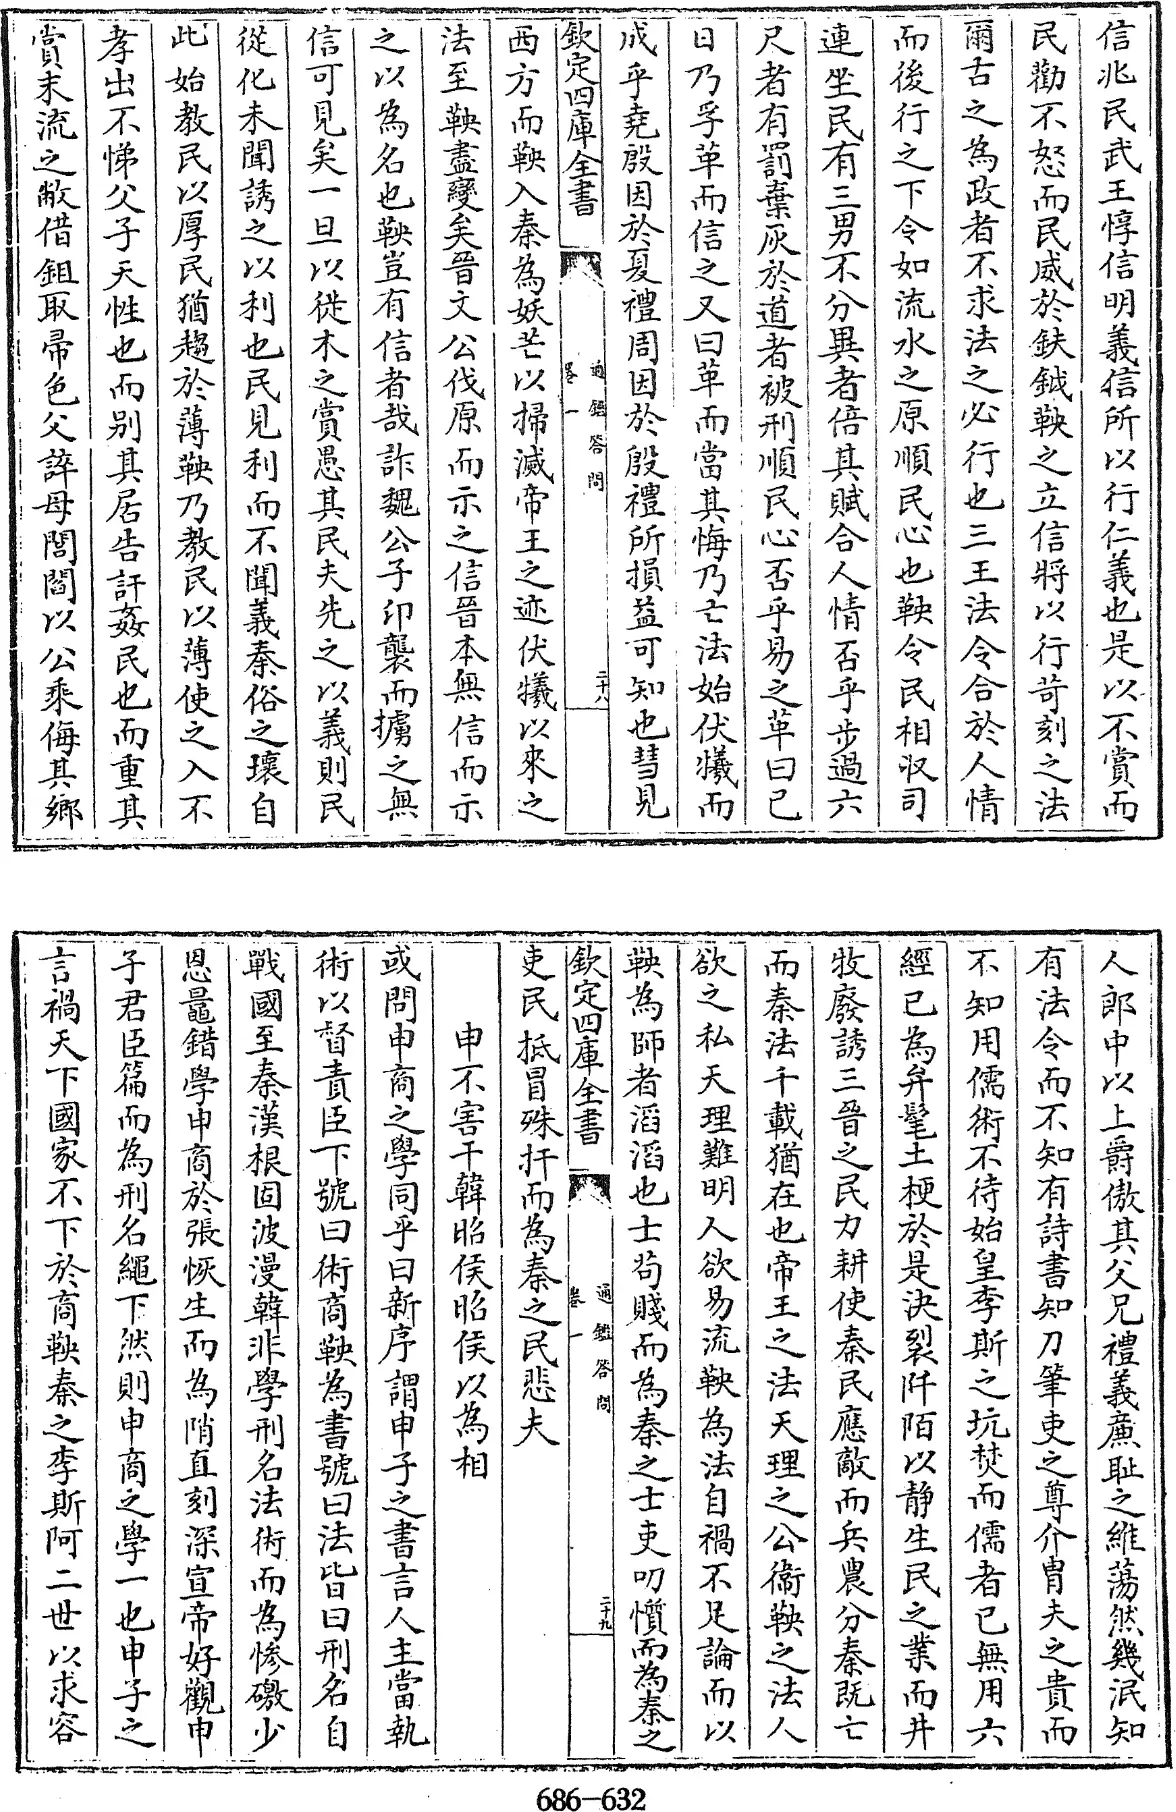 信兆民武王惇信明義信所以行仁義也是以不賞而
民勸不怒而民威於鈇鉞鞅之立信將以行苛刻之法
爾古之為政者不求法之必行也三王法令合於人情
而後行之下令如流水之原順民心也鞅令民相収司
連坐民有三男不分異者倍其賦合人情否乎步過六
尺者有罰棄灰於道者被刑順民心否乎易之革曰已
日乃孚革而信之又曰革而當其悔乃亡法始伏犧而
成乎堯殷因於夏禮周因於殷禮所損益可知也彗見
欽定四庫全書
通鑑答問
卷一
二十八
西方而鞅入秦為妖芒以掃滅帝王之迹伏犧以來之
法至鞅盡變矣晉文公伐原而示之信晉本無信而示
之以為名也鞅豈有信者哉詐魏公子卬襲而擄之無
信可見矣一旦以徙木之賞愚其民夫先之以義則民
從化未聞誘之以利也民見利而不聞義秦俗之壞自
此始教民以厚民猶趨於薄鞅乃教民以薄使之入不
孝出不悌父子天性也而别其居告訐姦民也而重其
賞末流之敝借鉏取帚色父誶母閭閻以公乘侮其鄉
人郎中以上爵傲其父兄禮義亷耻之維蕩然幾泯知
有法令而不知有詩書知刀筆吏之尊介胄夫之貴而
不知用儒術不待始皇李斯之坑焚而儒者已無用六
經已為弁髦土梗於是決裂阡陌以静生民之業而井
牧廢誘三晉之民力耕使秦民應敵而兵農分秦既亡
而秦法千載猶在也帝王之法天理之公衞鞅之法人
欲之私天理難明人欲易流鞅為法自禍不足論而以
鞅為師者滔滔也士茍賤而為秦之士吏叨懫而為秦之
欽定四庫全書
通鑑答問
卷一
二十九
吏民抵冒殊扞而為秦之民悲夫
申不害干韓昭侯昭侯以為相
或問申商之學同乎曰新序謂申子之書言人主當執
術以督責臣下號曰術商鞅為書號曰法皆曰刑名自
戰國至秦漢根固波漫韓非學刑名法術而為慘礉少
恩鼂錯學申商於張恢生而為陗直刻深宣帝好觀申
子君臣篇而為刑名繩下然則申商之學一也申子之
言禍天下國家不下於商鞅秦之李斯阿二世以求容
686-632